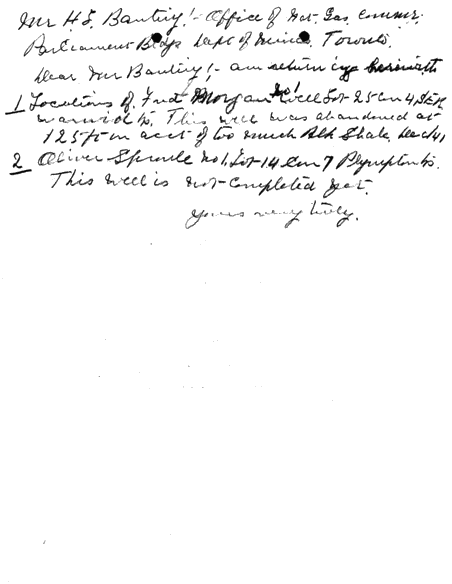 Mr H.S. Banting!- Office of Nat. Gas. Commr.
Parliament Bldgs Dept of Mines. Toronto.
Dear Mr Banting!- am returning herewith
1 Locations of Fred Morgan No 1 Well Lot 25 Con 4 S.E.R.
Warwick tp. This well was abandoned at
125 ft on acct of too much Blk Shale. Dec/41
2 Oliver Sproule No 1. Lot 14 Con 7 Plympton tp.
This well is not completed yet.
Yours very truly.